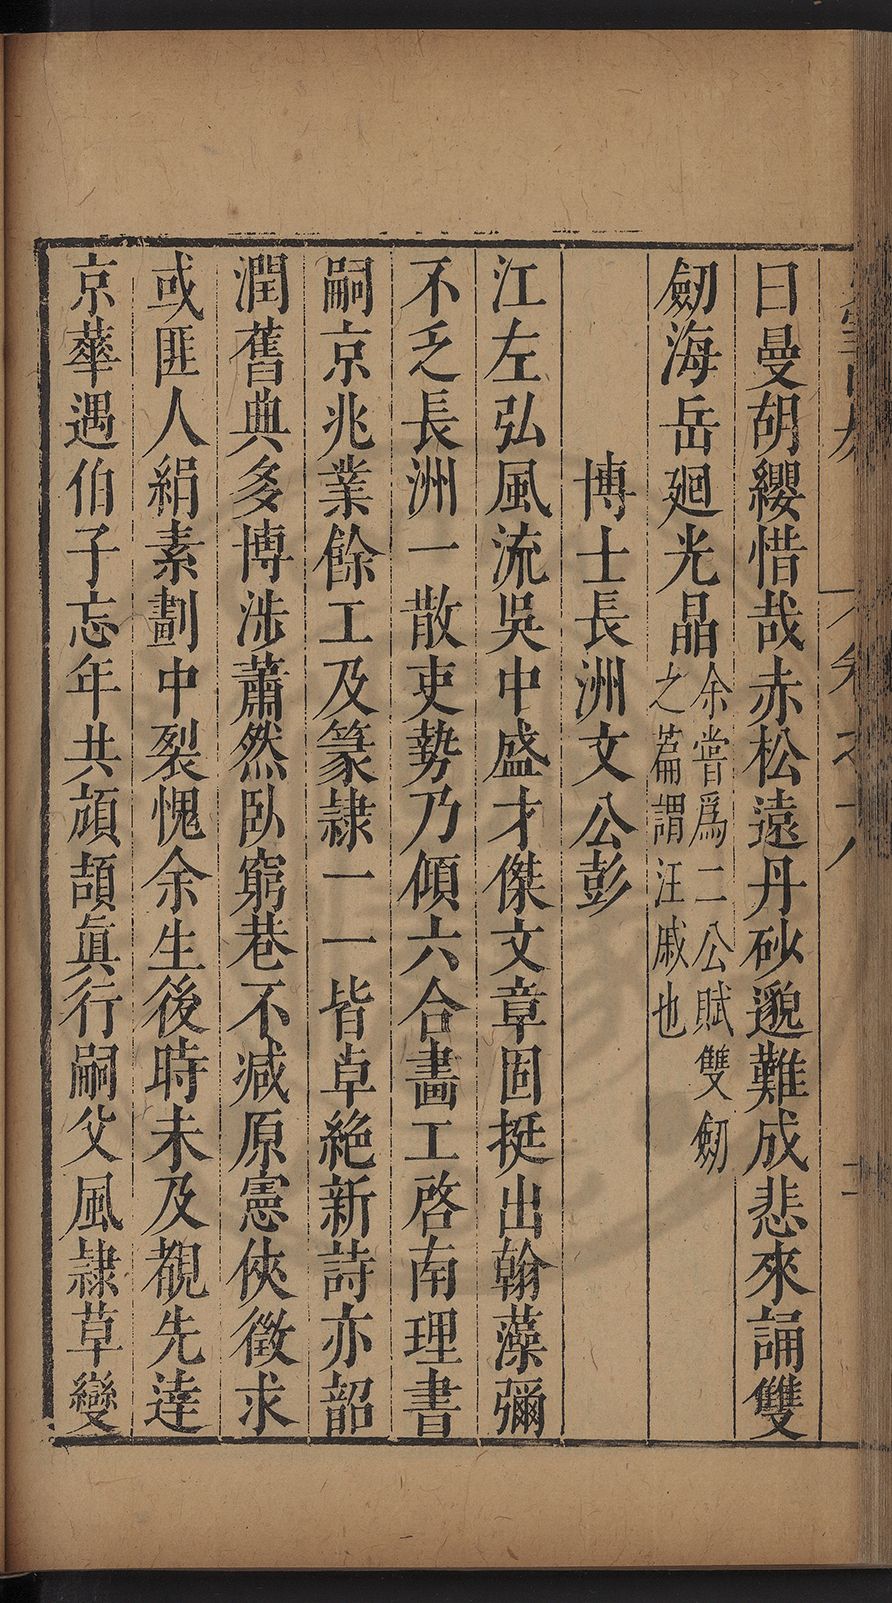 曰曼胡纓惜哉赤松遠丹砂邈難成悲來誦雙
劒海岳廻光晶余嘗爲二公賦雙劒
之篇謂汪戚也
博士長洲文公彭
江左弘風流吳中盛才傑文章固挺出翰藻彌
不乏長洲一散吏勢乃傾六合畵工啓南理書
嗣京兆業餘工及篆隷一一皆卓絶新詩亦韶
潤舊典多博涉蕭然臥窮巷不减原憲俠徵求
或匪人絹素劃中裂愧余生後時未及覩先達
京華遇伯子忘年共頏頡眞行嗣父風隷草變